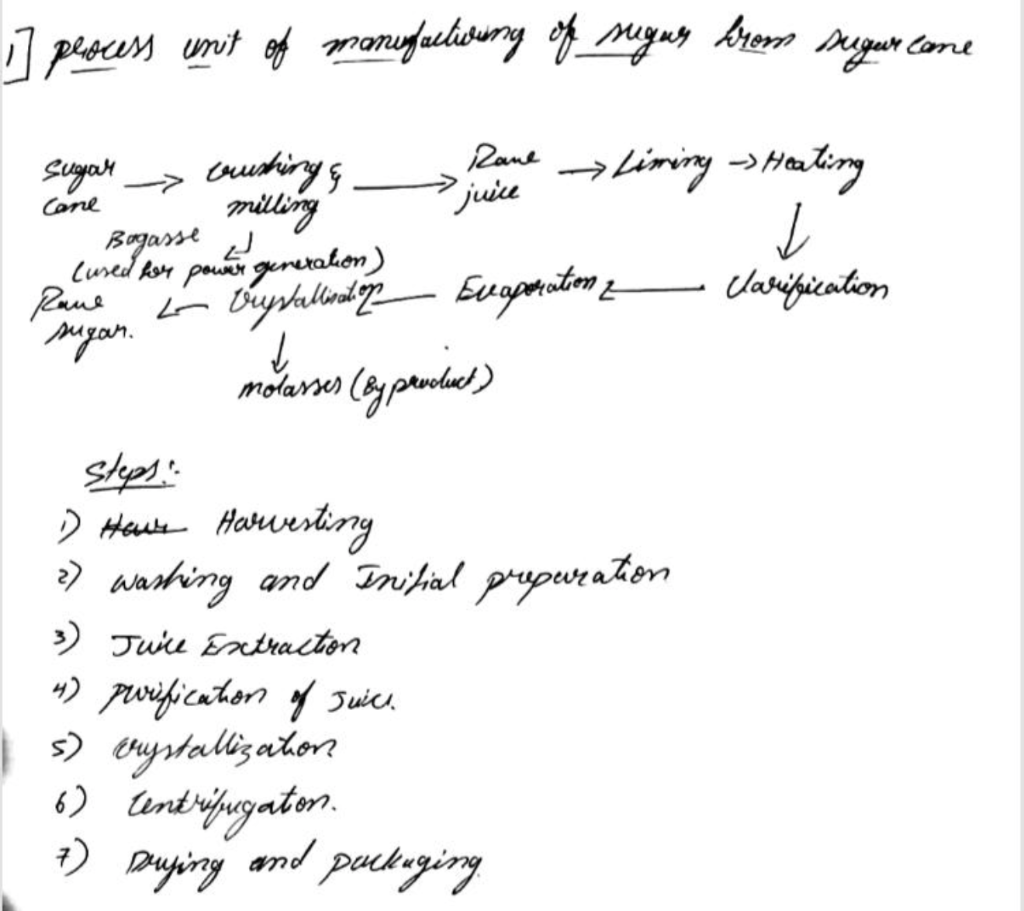 1] process unit of manufacturing of sugar from sugarcane
Sugar → crushing & → Rane → Liming → Heating
cane milling juice
Bagasse
(used for power generation)
Rane ← Crystallization ← Evaporation ← Clarification
sugar.
molasses (By product)
Steps :-
1) Harvesting
2) washing and Initial preparation
3) Juice Extraction
4) purification of Juice.
5) crystallization
6) Centrifugation.
7) Drying and packaging